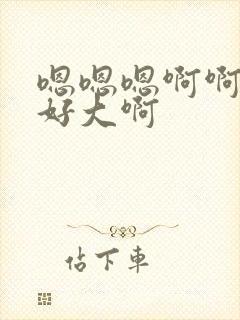 嗯嗯嗯啊啊
好大啊
佔下車